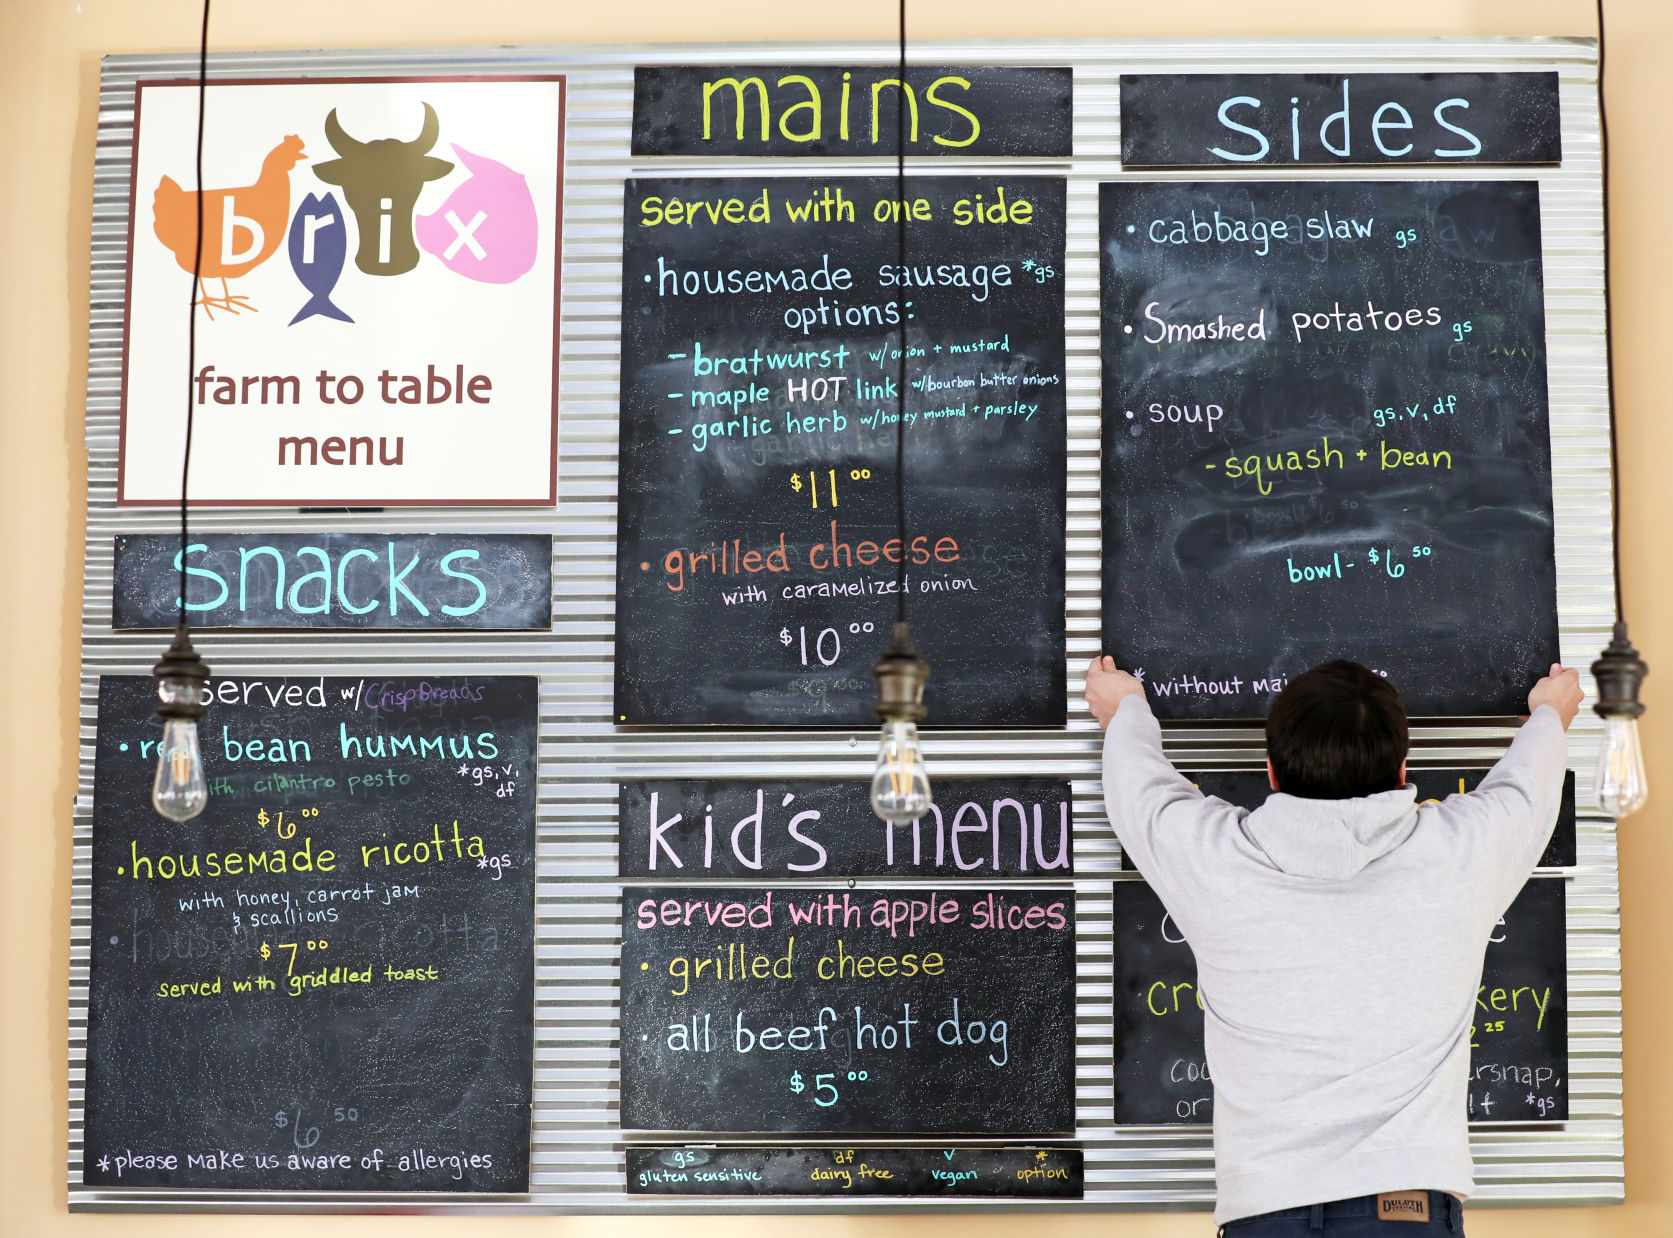 brix
farm to table
menu
snacks
served w/ Crisp Breads
• red bean hummus
with cilantro pesto
*gs, v,
df
$6.00
• housemade ricotta
*gs
with honey, carrot jam
& scallions
$7.00
served with griddled toast
housemade ricotta
$6.50
*please make us aware of allergies
mains
served with one side
• housemade sausage *gs
options:
- bratwurst w/ onion + mustard
- maple HOT link w/ bourbon butter onions
- garlic herb w/ honey mustard + parsley
$11.00
• grilled cheese
with caramelized onion
$10.00
kid's menu
served with apple slices
• grilled cheese
• all beef hot dog
$5.00
gs
gluten sensitive
df
dairy free
v
vegan
*
option
sides
• cabbage slaw gs
• Smashed potatoes gs
• soup gs, v, df
- squash + bean
bowl - $6.50
* without
*gs
DULUTH